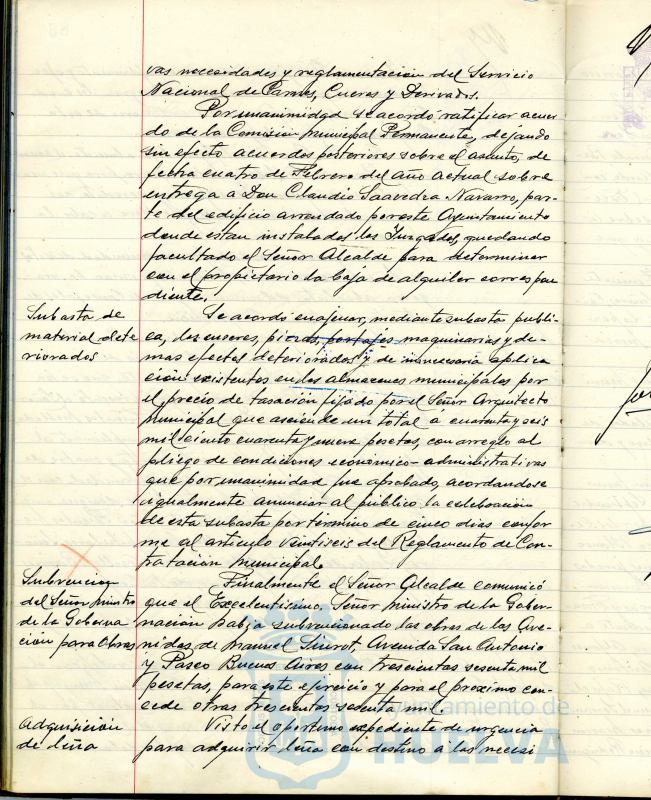 vas necesidades y reglamentación del Servicio
Nacional de Carnes, Cueros y Derivados.
Por unanimidad se acordó ratificar acuer
do de la Comisión Municipal Permanente, dejando
sin efecto acuerdos posteriores sobre el asunto, de
fecha cuatro de Febrero del año actual sobre
entrega á Don Claudio Saavedra Navarro, par-
te del edificio arrendado por este Ayuntamiento
donde estan instalados los Juzgados, quedando
facultado el Señor Alcalde para determinar
con el propietario la baja de alquiler correspon
diente.
Subasta de
material dete
riorados
Se acordó enajenar, mediante subasta publi-
ca, los enseres, piezas, portajes maquinarias y de-
mas efectos deteriorados y de innecesaria aplica
ción existentes en los almacenes municipales por
el precio de tasación fijado por el Señor Arquitecto
Municipal que asciende un total á cuarenta y seis
mil seiscientos cuarenta y nueve pesetas, con arreglo al
pliego de condiciones económico-administrativas
que por unanimidad fue aprobado, acordandose
igualmente anunciar al público la celebración
de esta subasta por término de cinco dias confor
me al artículo veintiseis del Reglamento de Con-
tratación Municipal.
Subvencion
del Señor Ministro
de la Goberna
ción para Obras
Finalmente el Señor Alcalde comunicó
que el Excelentísimo Señor Ministro de la Gober-
nación habia subvencionado las obras de las Ave-
nidas de Manuel Siurot, Avenida San Antonio
y Paseo Buenos Aires con trescientas sesenta mil
pesetas, para este ejercicio y para el proximo con-
cede otras trescientas sesenta mil.
Adquisición
de leña
Visto el oportuno expediente de urgencia
para adquirir leña con destino á las necesi
Ayuntamiento de
HUELVA